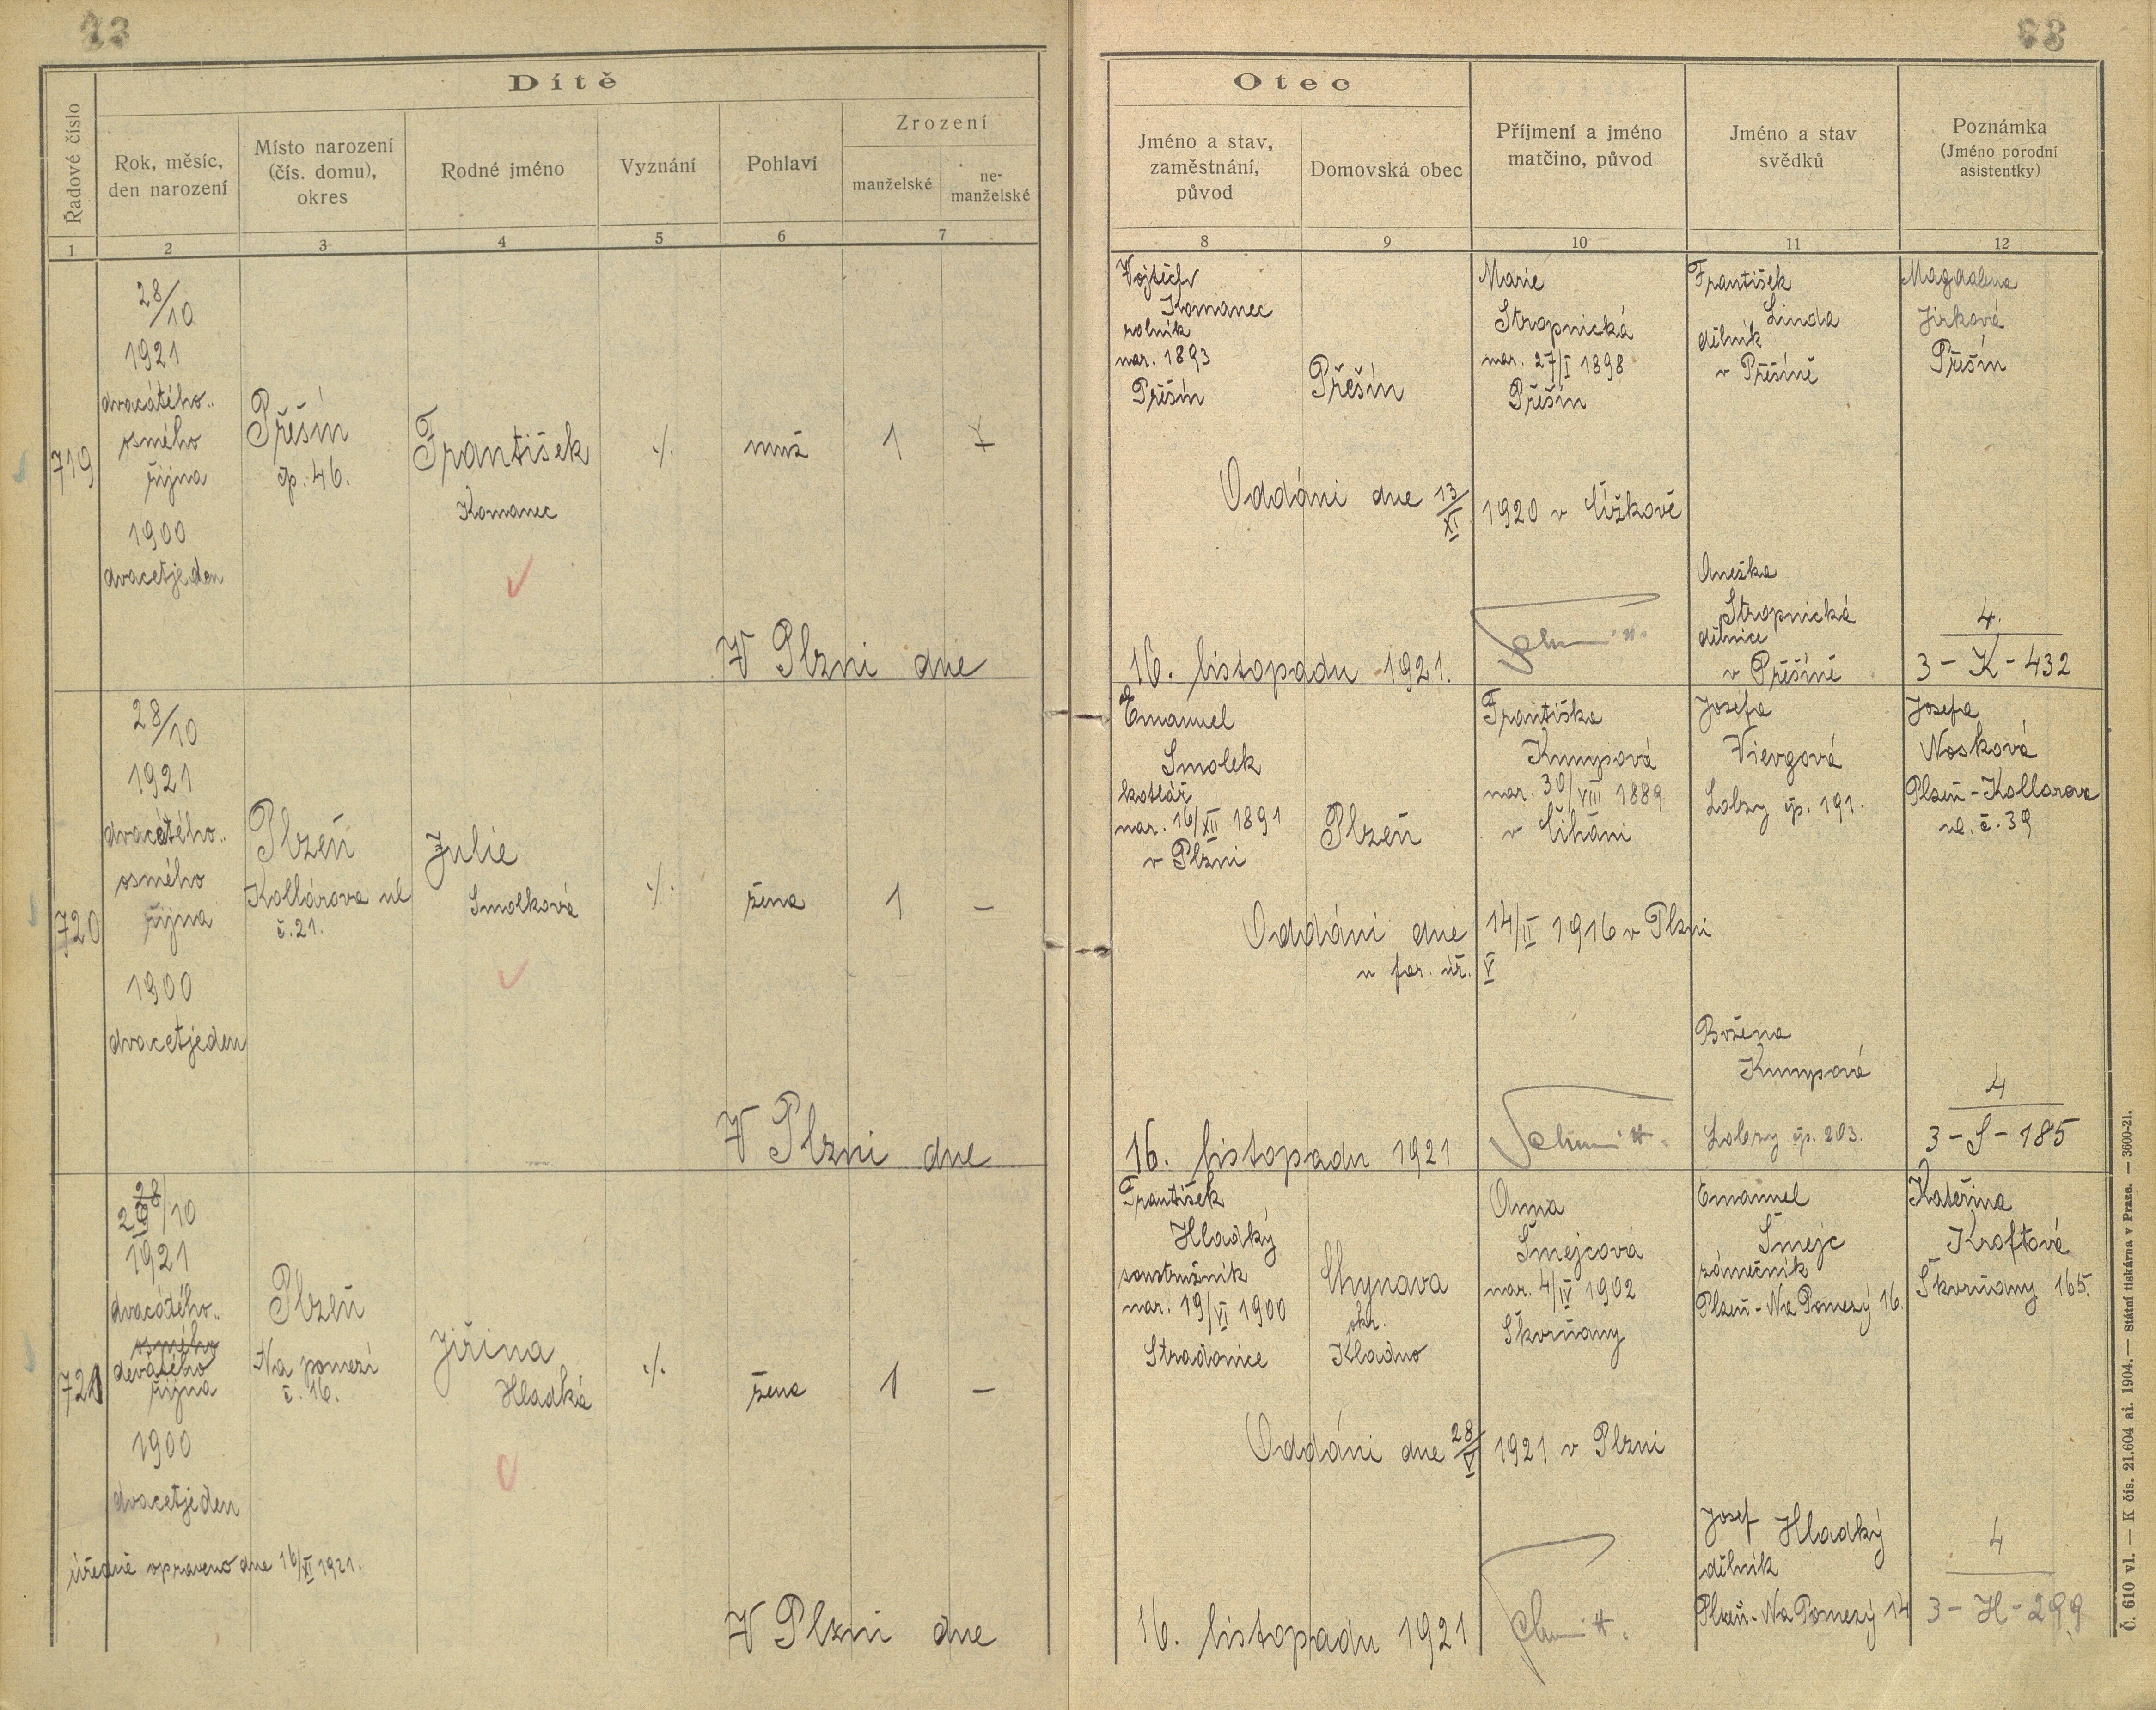 Dítě
Řadové číslo
Rok, měsíc,
den narození
Místo narození
(čís. domu),
okres
Rodné jméno
Vyznání
Pohlaví
Zrození
manželské
ne-
manželské
1
2
3
4
5
6
7
719
28/10
1921
dvacátého..
osmého
října
1900
dvacetjeden
Přešín
čp. 46.
František
Komanec
./.
muž
1
V Plzni dne
720
28/10
1921
dvacátého..
osmého
října
1900
dvacetjeden
Plzeň
Kollárova ul
č. 21.
Julie
Smolková
./.
žena
1
–
V Plzni dne
721
/10
1921
dvacátého..
osmého
devátého
října
1900
dvacetjeden
úředně opraveno dne 16/XI 1921.
Plzeň
Na pomezí
č. 16.
Jiřina
Hladká
./.
žena
1
–
V Plzni dne
Otec
Jméno a stav,
zaměstnání,
původ
Domovská obec
Příjmení a jméno
matčino, původ
Jméno a stav
svědků
Poznámka
(Jméno porodní
asistentky)
8
9
10
11
12
Vojtěch
Komanec
rolník
nar. 1893
Přešín
Přešín
Marie
Stropnická
nar. 27/I 1898
Přešín
František
Linda
dělník
v Přešíně
Magdalena
Jirková
Přešín
Oddáni dne 13/XI 1920 v Čížkově
Anežka
Stropnická
dělnice
v Přešíně
4.
3 - K - 432
16. listopadu 1921.
Emanuel
Smolek
kotlář
nar. 16/XII 1891
v Plzni
Plzeň
Františka
Kumpová
nar. 30/VIII 1889
v Číháni
Josefa
Vievgová
Lobzy čp. 191.
Josefa
Nosková
Plzeň - Kollarova
ul. č. 39
Oddáni dne 14/II 1916 v Plzni
u far. úř. V
Božena
Kumpová
Lobzy čp. 203.
4
3 - S - 185
16. listopadu 1921
František
Hladký
soustružník
nar. 19/VI 1900
Stradonice
Chynava
okr.
Kladno
Anna
Šmejcová
nar. 4/IV 1902
Škvrňany
Emanuel
Šmejc
zámečník
Plzeň - Na Pomezý 16.
Kateřina
Kroftová
Škvrňany 165.
Oddáni dne 28/V 1921 v Plzni
Josef Hladký
dělník
Plzeň - Na Pomezý 14
4
3 - H - 299
16. listopadu 1921
Č. 610 vl. — K čís. 21.604 ai. 1904. — Státní tiskárna v Praze. — 3600-21.